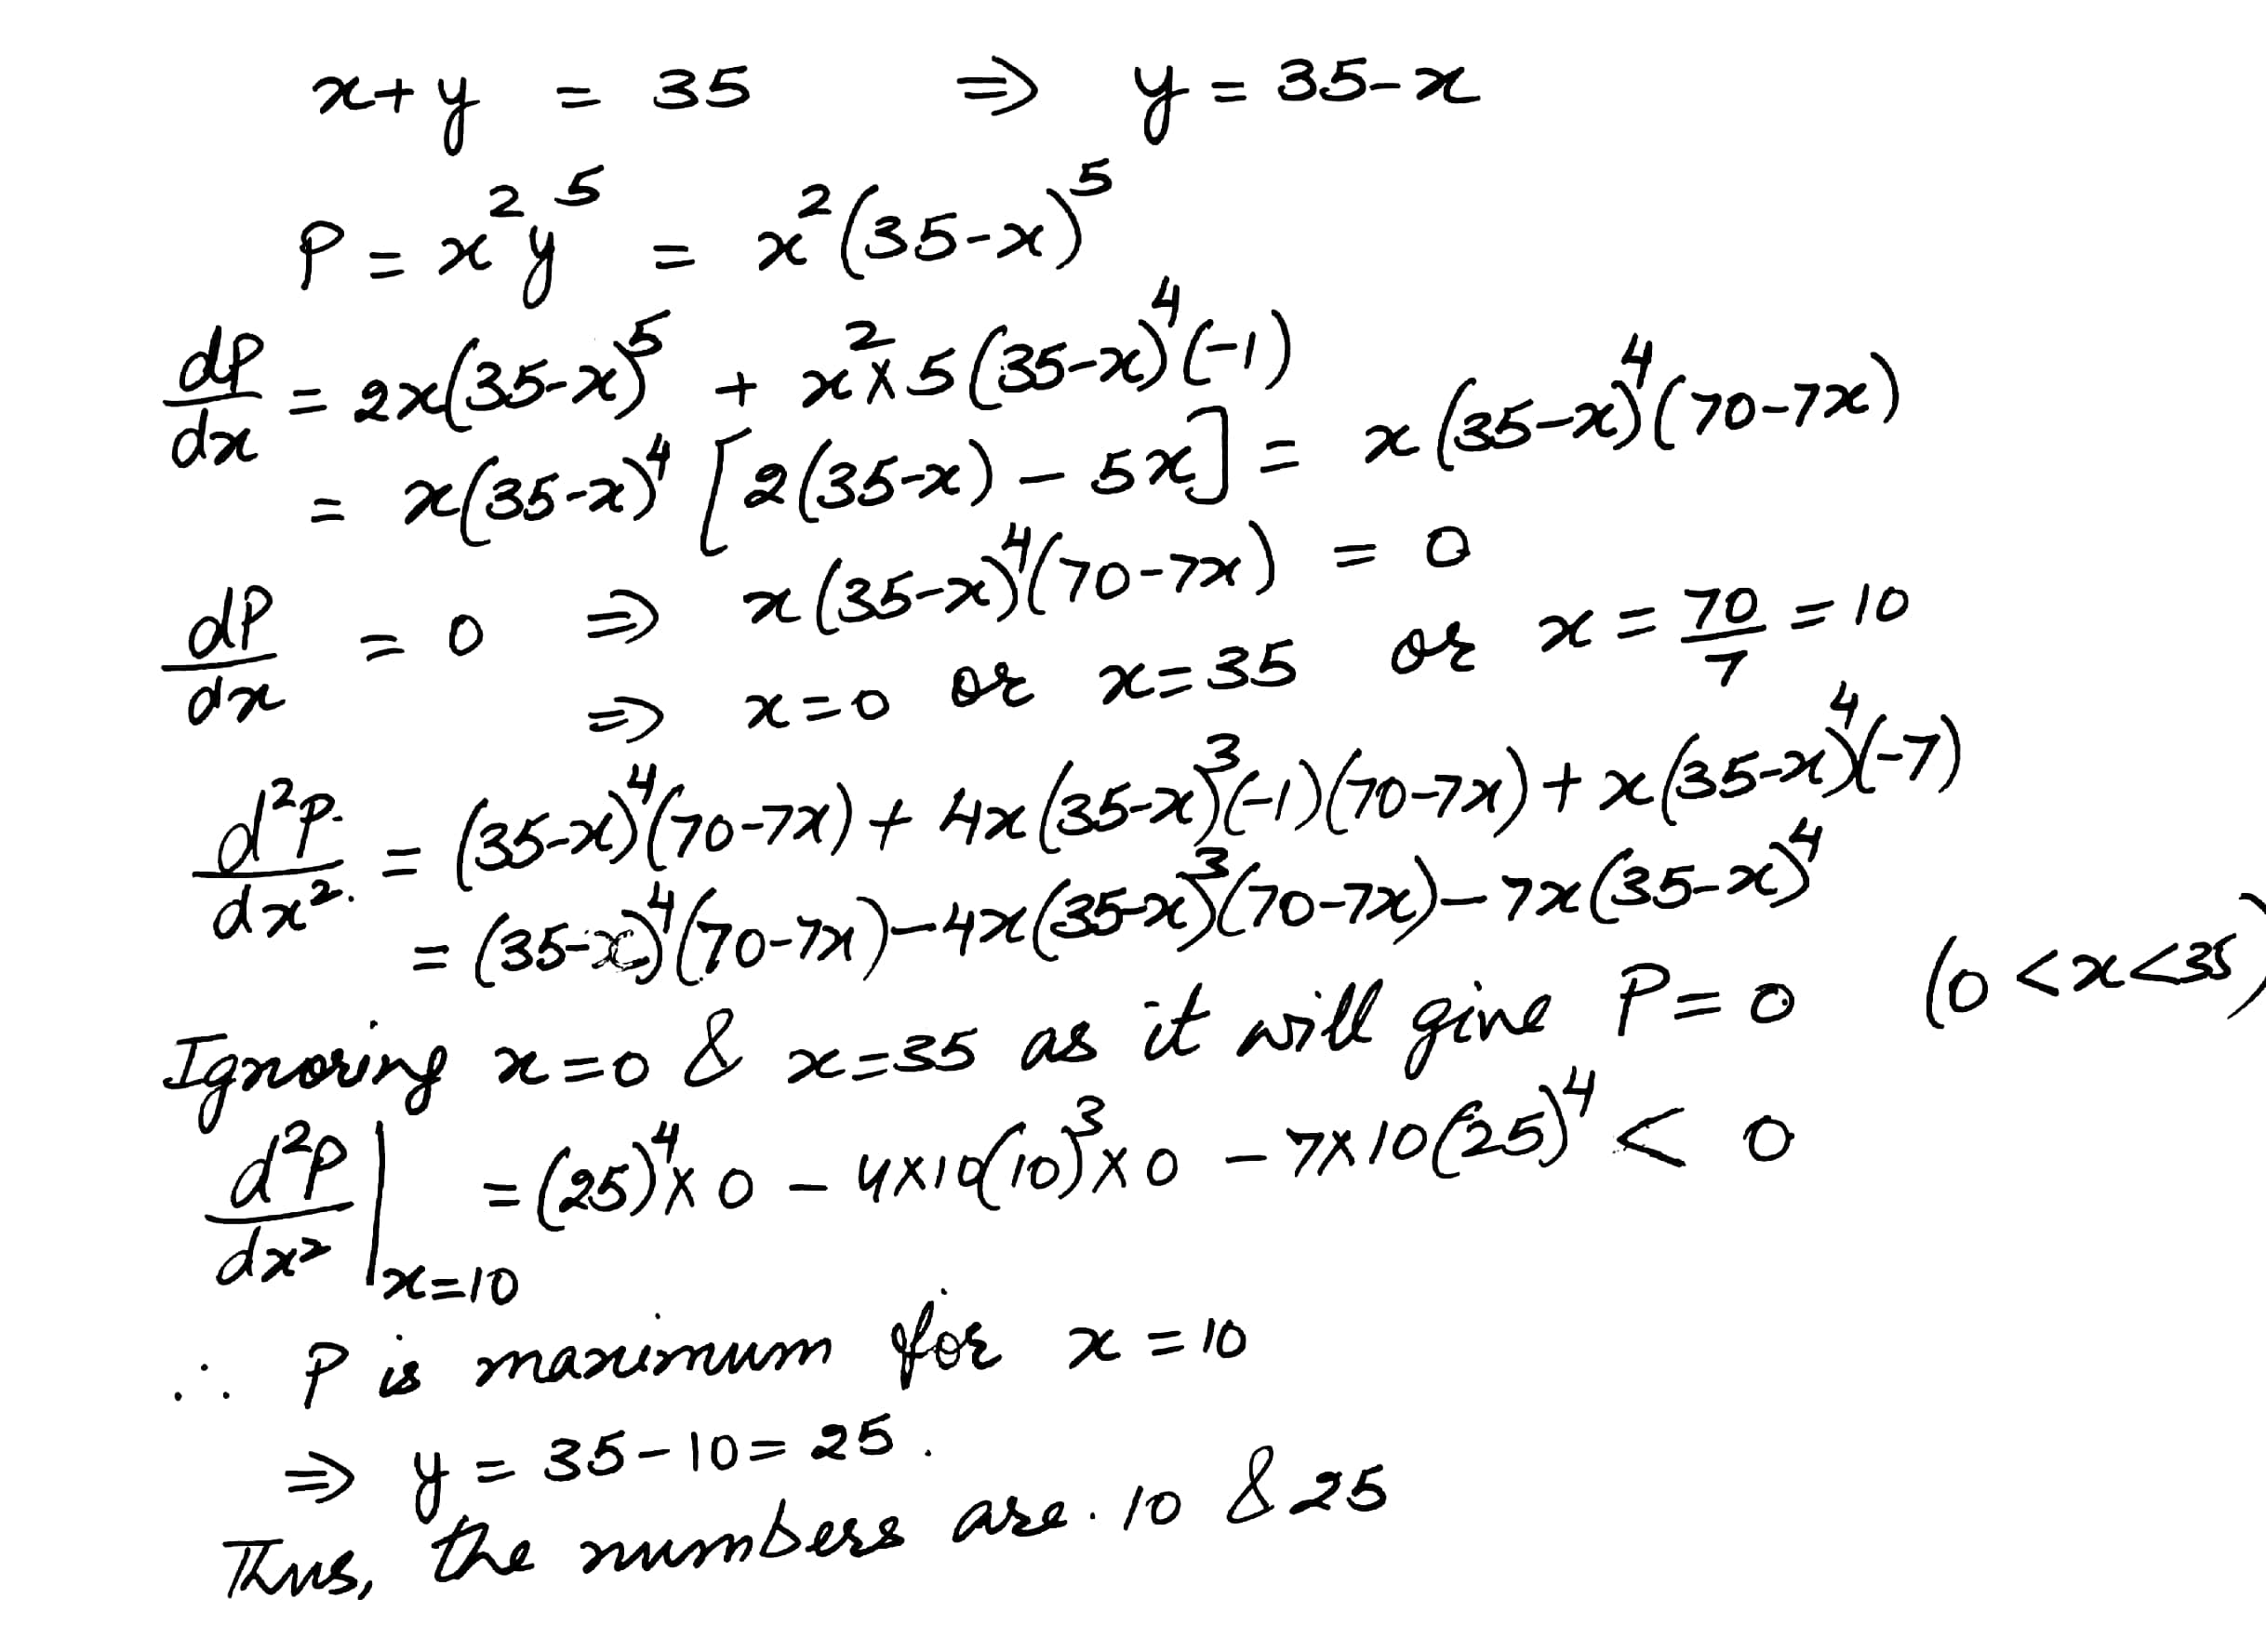 x+y = 35 ⇒ y = 35-x
P = x²y⁵ = x²(35-x)⁵
dP/dx = 2x(35-x)⁵ + x²×5(35-x)⁴(-1)
= x(35-x)⁴[2(35-x) - 5x] = x(35-x)⁴(70-7x)
dP/dx = 0 ⇒ x(35-x)⁴(70-7x) = 0
⇒ x=0 or x=35 or x = 70/7 = 10
d²P/dx² = (35-x)⁴(70-7x) + 4x(35-x)³(-1)(70-7x) + x(35-x)⁴(-7)
= (35-x)⁴(70-7x) - 4x(35-x)³(70-7x) - 7x(35-x)⁴
Ignoring x=0 & x=35 as it will give P=0 (0<x<35)
d²P/dx² |x=10 = (25)⁴×0 - 4×10(10)³×0 - 7×10(25)⁴ < 0
∴ P is maximum for x=10
⇒ y = 35-10 = 25.
Thus, the numbers are. 10 & 25